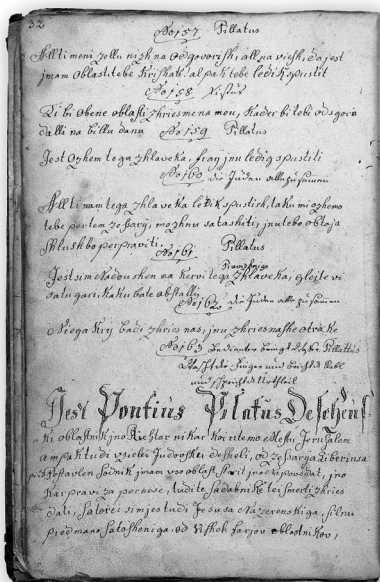 32 No 157 Pillatus
Allti meni zollu nizh na odgovorish, all na viesh, da jest
jmam oblast, tebe krishati al pak tebe ledik spustit
No 158 Xistus
Ti bi obene oblasti zhries me na mou, kader bi tebi od sgora
dalli na billu danu No 159 Pillatus
Jest ozhem tega zhlaveka, fray jnu ledig spustiti
No 160 die Juden alle zusamen
Allti nam tega zhlaveka ledik spustish, taku mi ozhemo
tebe per tem zesary, mozhnu satoshiti, jnu tebo obloja
Shlushbo perpraviti. No 161 Pillatus
Jest sim Nadoushen na kervi tega Pravizhniga zhlaveka, glejte vi
sa tu gari kaku bate obstalli No 162 die Juden alle zusamen
Niega kry badi zhries nas, jnu zhries nashe otroke
No 163 Bedienter bringt Pillattus
Wascht die Finger und bricht Stabl
und spricht das Urtheil
Jest Pontius Pilatus Deschens
ki oblastnik jno Richtar nikar koi utemo Mestu Jerusalem
ampak tudi vsielei Judovskei desheli, od zesarja Tiberiusa
postavlen Sodnik jmam vso oblast jno zapovedat, jno
kar pravi za pernese, tudi te sadabnike tei smerti zhries
dati, satorei simjes tudi Jesusa Nazarenskiga, silnu
pred mano satosheniga, od vishek farjov oblostnikov,